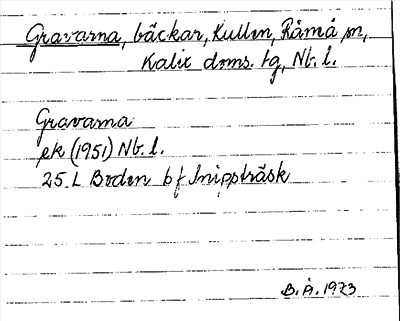 Gravarna, bäckar, Kullen, Råmå sn,
Kalix doms. tg, Nb. l.
Gravarna
ek (1951) Nb. l.
25 L Boden b f Snippträsk
B.Å. 1973